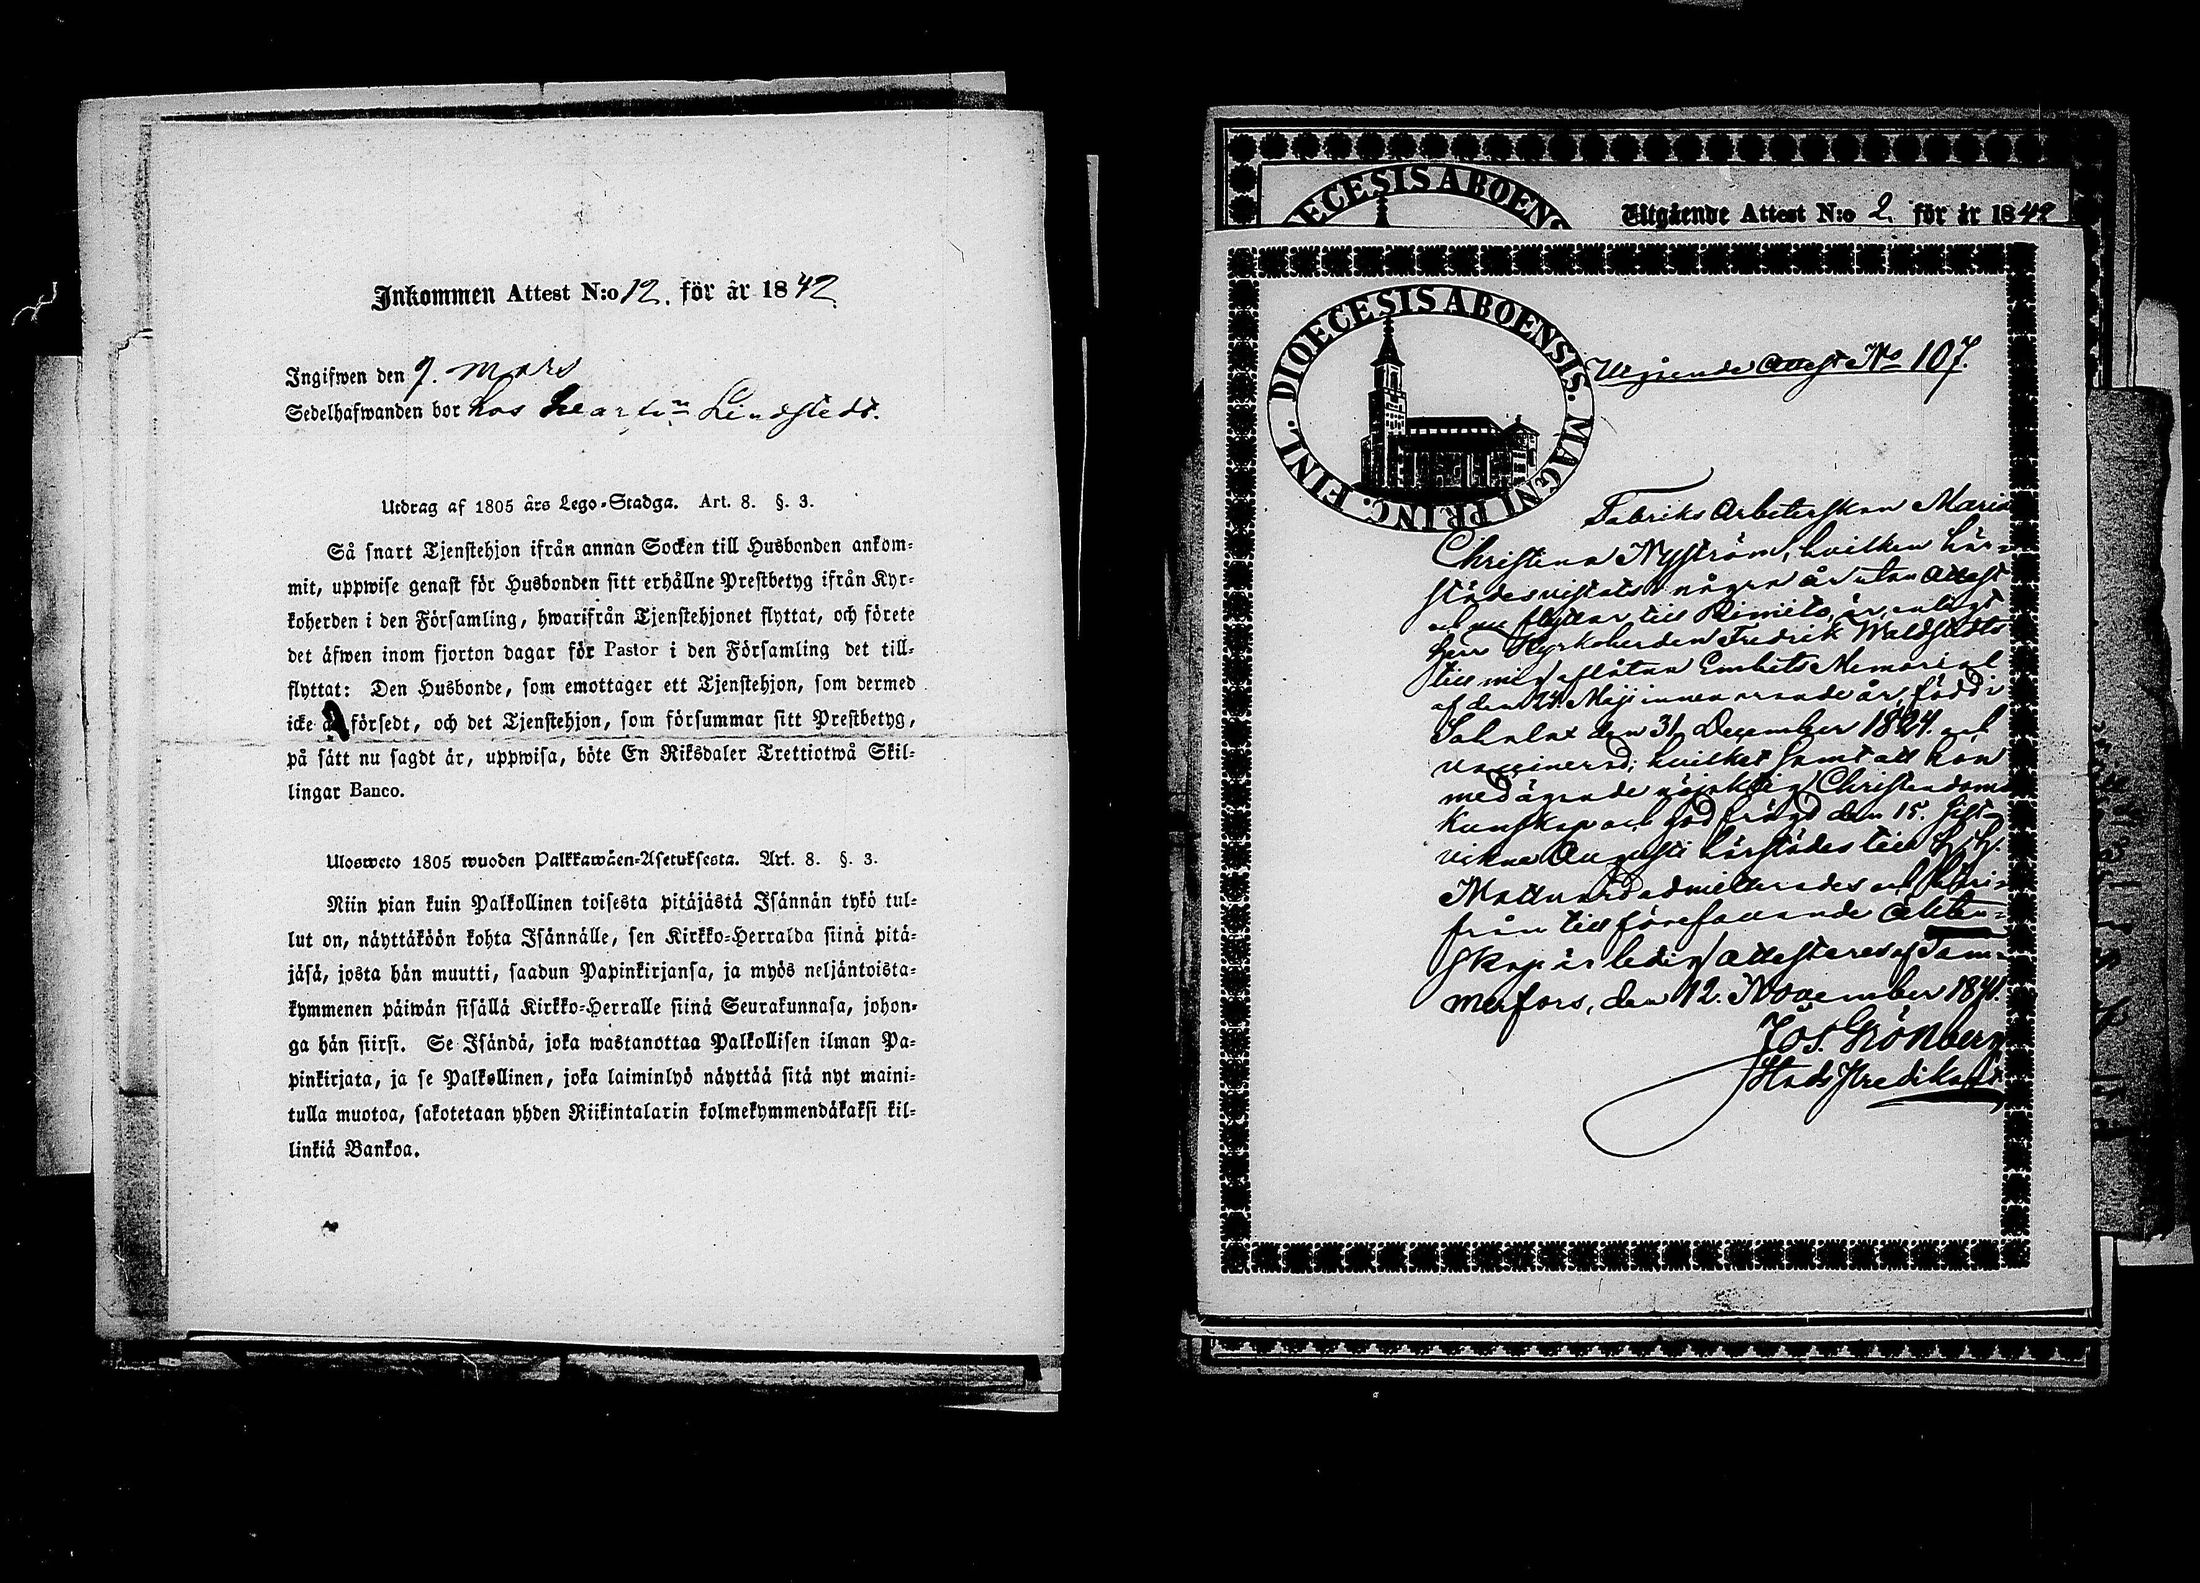 Inkommen Attest N:o 12. för år 1842
Ingifwen den 9. Mars
Sedelhafwanden bor hos Lindstedt.
Utdrag af 1805 års Lego-Stadga. Art. 8. §. 3.
Så snart Tjenstehjon ifrån annan Socken till Husbonden ankom-
mit, uppwise genast för Husbonden sitt erhållne Prestbetyg ifrån Kyr-
koherden i den Församling, hwarifrån Tjenstehjonet flyttat, och förete
det äfwen inom fjorton dagar för Pastor i den Församling det till-
flyttat: Den Husbonde, som emottager ett Tjenstehjon, som dermed
icke är försedt, och det Tjenstehjon, som försummar sitt Prestbetyg,
på sätt nu sagdt är, uppwisa, böte En Riksdaler Trettiotwå Skil-
lingar Banco.
Ulosweto 1805 wuoden Palkkawäen-Asetuksesta. Art. 8. §. 3.
Niin pian kuin Palkollinen toisesta pitäjästä Isännän tykö tul-
lut on, näyttäköön kohta Isännälle, sen Kirkko-Herralda siinä pitä-
jäsä, josta hän muutti, saadun Papinkirjansa, ja myös neljäntoista-
kymmenen päiwän sisällä Kirkko-Herralle siinä Seurakunnasa, johon-
ga hän siirsi. Se Isändä, joka wastanottaa Palkollisen ilman Pa-
pinkirjata, ja se Palkollinen, joka laiminlyö näyttää sitä nyt maini-
tulla muotoa, sakotetaan yhden Riikintalarin kolmekymmendäkaksi kil-
linkiä Bankoa.
DIOECESIS ABOENS
Utgående Attest N:o 2. för år 1842
DIOECESIS ABOENSIS. MAGNI PRINC. FINL.
Utgående Attest No 107.
Fabriks Arbeterskan Maria
Christina Nyström, hvilken här-
städes vistats några år utan Attest
och nu flyttar till Rimito, är enligt
Herr Kyrkoherden Fredrik Waldstedts
till mig aflåtna Embets Memorial
af den 24 Maji innevarande år, född i
Sahalax den 31 December 1824. och
vaccinerad; hvilket samt att hon
med ägande nöjaktig Christendoms
kunskap och god frägd den 15. sist-
vikne Augusti härstädes till H. H.
Nattvard admitterades och häri-
från till förefallande Äkten-
skap är ledig attesteras af Tam-
merfors, den 12. November 1841.
Jos. Grönberg
Stads Predikant